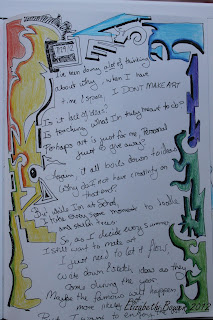 I've been doing a lot of thinking
about why, when I have
time & space, I DON'T MAKE ART
Is it lack of ideas?
Is teaching what I'm truly meant to do
Perhaps art is just for me, personal
just to give away.
it all boils down to ideas
Why do I not have creativity on
that end?
But while I'm at School,
I take every spare moment to
and
So, as I decide every summer
I still want to make art
I just need to let it flow.
Write down & sketch ideas as they
come during the year.
Maybe the famous will happen
more likely
I want to
Elizabeth Bogard 2012